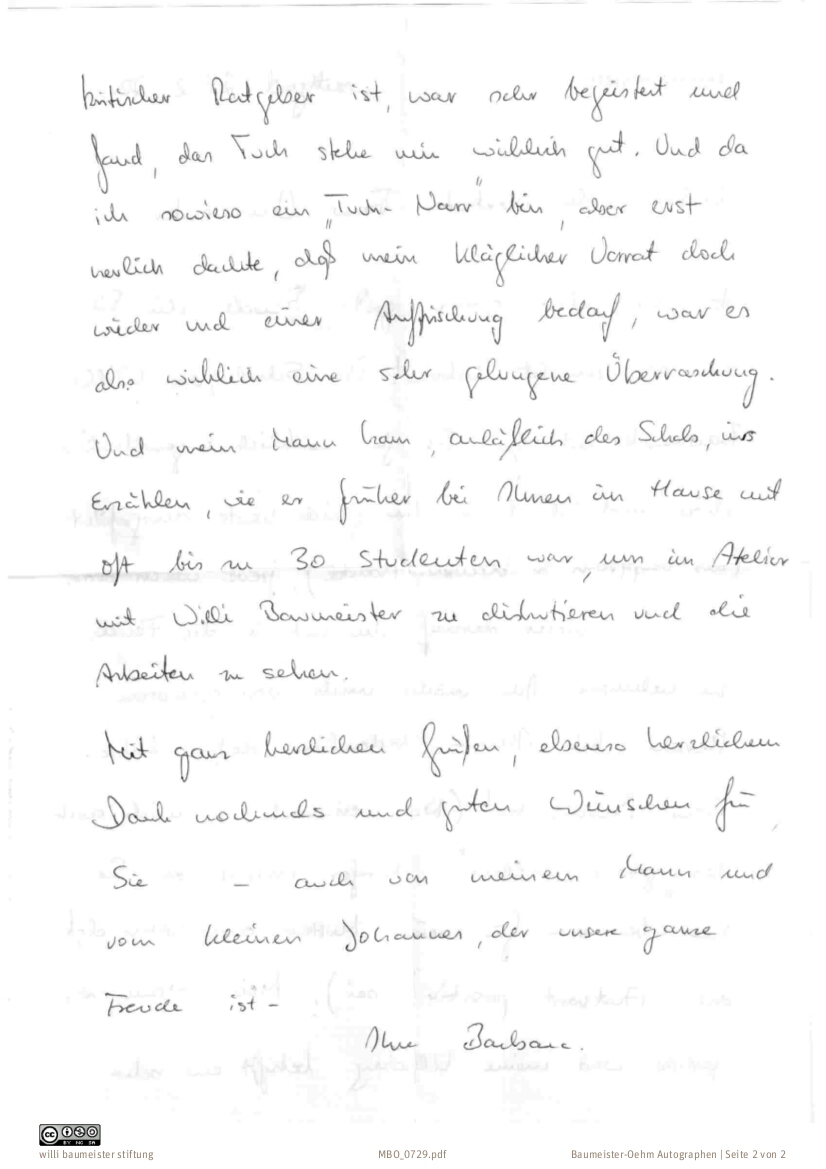 kritischer Ratgeber ist, war sehr begeistert und
fand, das Tuch stehe mir wirklich gut. Und da
ich sowieso ein „Tuch-Narr" bin, aber erst
neulich dachte, daß mein kläglicher Vorrat doch
wieder mal einer Auffrischung bedarf, war es
also wirklich eine sehr gelungene Überraschung.
Und mein Mann kam, anläßlich des Schals, ins
Erzählen, wie er früher bei Ihnen im Hause mit
oft bis zu 30 Studenten war, um im Atelier
mit Willi Baumeister zu diskutieren und die
Arbeiten zu sehen.
Mit ganz herzlichen Grüßen, ebenso herzlichem
Dank nochmals und guten Wünschen für
Sie – auch von meinem Mann und
vom kleinen Johannes, der unsere ganze
Freude ist –
Ihre Barbara.
CC BY NC SA
willi baumeister stiftung MBO_0729.pdf Baumeister-Oehm Autographen | Seite 2 von 2